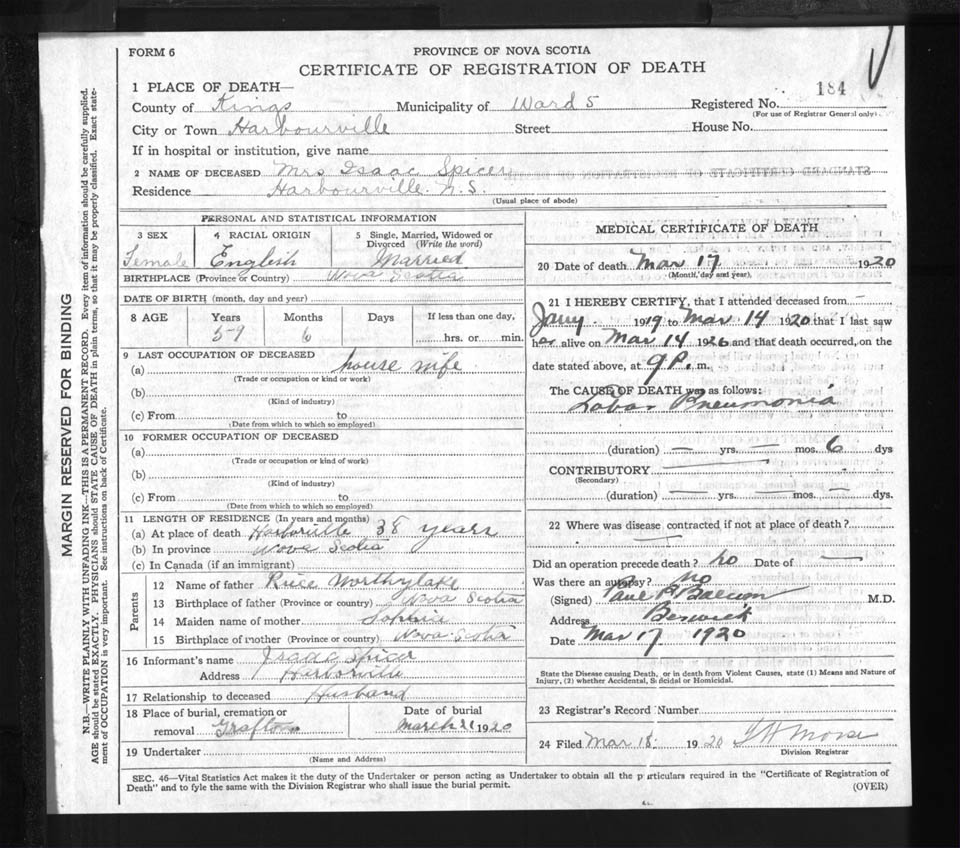 FORM 6
PROVINCE OF NOVA SCOTIA
CERTIFICATE OF REGISTRATION OF DEATH
1 PLACE OF DEATH—
184
County of Kings Municipality of Ward 5 Registered No.
(For use of Registrar General only)
City or Town Harbourville Street House No.
If in hospital or institution, give name
2 NAME OF DECEASED Mrs Isaac Spicer
Residence Harbourville N.S.
(Usual place of abode)
PERSONAL AND STATISTICAL INFORMATION
3 SEX 4 RACIAL ORIGIN 5 Single, Married, Widowed or Divorced (Write the word)
Female English Married
BIRTHPLACE (Province or Country) Nova Scotia
DATE OF BIRTH (month, day and year)
8 AGE Years Months Days If less than one day,
59 6 hrs. or min.
9 LAST OCCUPATION OF DECEASED
(a) house wife
(Trade or occupation or kind or work)
(b)
(Kind of industry)
(c) From to
(Date from which to which so employed)
10 FORMER OCCUPATION OF DECEASED
(a)
(Trade or occupation or kind of work)
(b)
(Kind of industry)
(c) From to
(Date from which to which so employed)
11 LENGTH OF RESIDENCE (In years and months)
(a) At place of death 38 years
(b) In province Nova Scotia
(c) In Canada (if an immigrant)
Parents
12 Name of father Rice Worthylake
13 Birthplace of father (Province or country) Nova Scotia
14 Maiden name of mother Sophia
15 Birthplace of mother (Province or country) Nova Scotia
16 Informant's name Isaac Spicer
Address Harborville
17 Relationship to deceased Husband
18 Place of burial, cremation or removal Grafton
Date of burial
March 21 1920
19 Undertaker
(Name and Address)
MEDICAL CERTIFICATE OF DEATH
20 Date of death Mar 17 1920
(Month, day and year)
21 I HEREBY CERTIFY, that I attended deceased from
1919 to Mar 14 1920 that I last saw
her alive on Mar 14 1920 and that death occurred, on the
date stated above, at 9 P. m.
The CAUSE OF DEATH was as follows:
Lobar Pneumonia
(duration) — yrs. — mos. 6 dys
CONTRIBUTORY
(Secondary)
(duration) — yrs. — mos. — dys.
22 Where was disease contracted if not at place of death?
—
Did an operation precede death? no Date of —
Was there an autopsy? no
(Signed) M.D.
Address Berwick
Date Mar 17 1920
State the Disease causing Death, or in death from Violent Causes, state (1) Means and Nature of
Injury, (2) whether Accidental, Suicidal or Homicidal.
23 Registrar's Record Number
24 Filed Mar 18 1920 Morse
Division Registrar
SEC. 46—Vital Statistics Act makes it the duty of the Undertaker or person acting as Undertaker to obtain all the particulars required in the "Certificate of Registration of
Death" and to fyle the same with the Division Registrar who shall issue the burial permit.
(OVER)
MARGIN RESERVED FOR BINDING
N.B.—WRITE PLAINLY WITH UNFADING INK—THIS IS A PERMANENT RECORD. Every item of information should be carefully supplied.
AGE should be stated EXACTLY. PHYSICIANS should STATE CAUSE OF DEATH in plain terms, so that it may be properly classified. Exact state-
ment of OCCUPATION is very important. See instructions on back of Certificate.